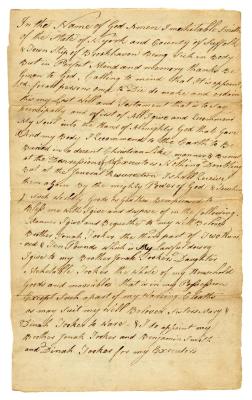 In the Name of God Amen I Mehitable Smith
of the State of N york and County of Suffolk
& Town Ship of Brookhaven Being Sick in body
But in Perfect Mind and memory thanks be
Given to God Calling to mind that it is appoint
ed for all persons once to Die do make and ordain
this my Last Will and Testament that is to Say
Principaly and first of All I give and Recommend
My Soul into the Hand of Almighty God that Gave
it And my Body I Recommend to the Earth to Be
Buried in Decent Christian Like manner Burial
at the Discression of my Executors Nothing Doubting
But at the General Resurrection I shall Receive
them again By the mighty Power of God & Touching
Such Worldly Goods
to Bless me with I give and dispose of in the following
Manner I give and Bequeathe to my well Beloved
Brother Jonah Tooker the third part of
and Ten Pounds which is My lawful dowry
I give to my Brother Jonah Tooker's Daughter
Mehetable Tooker the whole of my Household
Goods and moveables that is in my Possession
Except Such a part of my Wearing Cloaths
as may Suit my Well Beloved Sisters Mary &
Dinah Tooker to Wear & I do appoint my
Brother Jonah Tooker and Benjamin Smith
and Dinah Tooker for my Executors